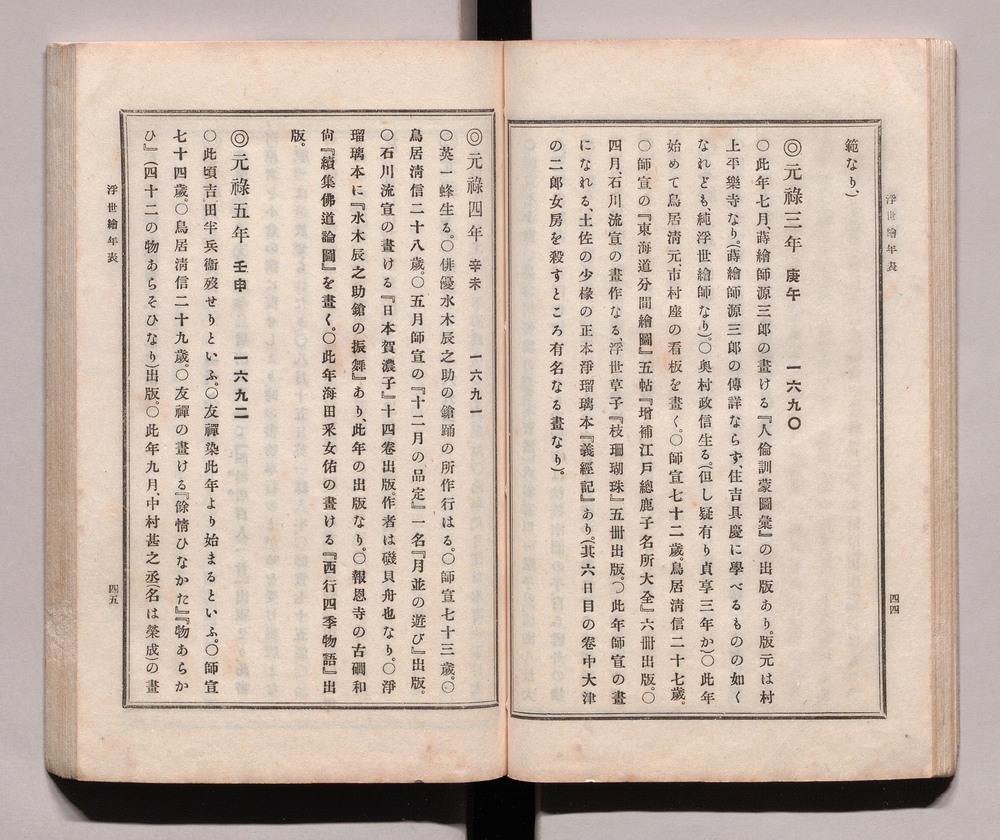 浮世繪年表
四四
範なり、)
◎元祿三年 庚午 一六九〇
〇此年七月、蒔繪師源三郎の畫ける『人倫訓蒙圖彙』の出版あり。版元は村
上平樂寺なり。(蒔繪師源三郎の傳詳ならず、住吉具慶に學べるものの如く
なれども、純浮世繪師なり)。〇奥村政信生る。(但し疑有り貞享三年か)〇此年
始めて鳥居清元、市村座の看板を畫く。〇師宣七十二歲。鳥居清信二十七歲。
〇師宣の『東海道分間繪圖』五帖『增補江戸總鹿子名所大全』六册出版。〇
四月、石川流宣の畫作なる、浮世草子『枝珊瑚珠』五册出版。〇此年師宣の畫
になれる、土佐の少椽の正本淨瑠璃本『義經記』あり。(其六日目の卷中大津
の二郎女房を殺すところ有名なる畫なり)。
◎元祿四年 辛未 一六九一
〇英一蜂生る。〇俳優水木辰之助の鎗踊の所作行はる。〇師宣七十三歲。〇
鳥居清信二十八歲。〇五月師宣の『十二月の品定』一名『月並の遊び』出版。
〇石川流宣の畫ける『日本賀濃子』十四卷出版。作者は磯貝舟也なり。〇淨
瑠璃本に『水木辰之助鎗の振舞』あり、此年の出版なり。〇報恩寺の古磵和
尙『續集佛道論圖』を畫く。〇此年海田釆女佑の畫ける『西行四季物語』出
版。
◎元祿五年 壬申 一六九二
〇此頃吉田半兵衞歿せりといふ。〇友禪染此年より始まるといふ。〇師宣
七十四歲。〇鳥居清信二十九歲。〇友禪の畫ける『餘情ひなかた』『物あらか
ひ』(四十二の物あらそひなり)出版。〇此年九月、中村甚之丞(名は榮成)の畫
浮世繪年表
四五